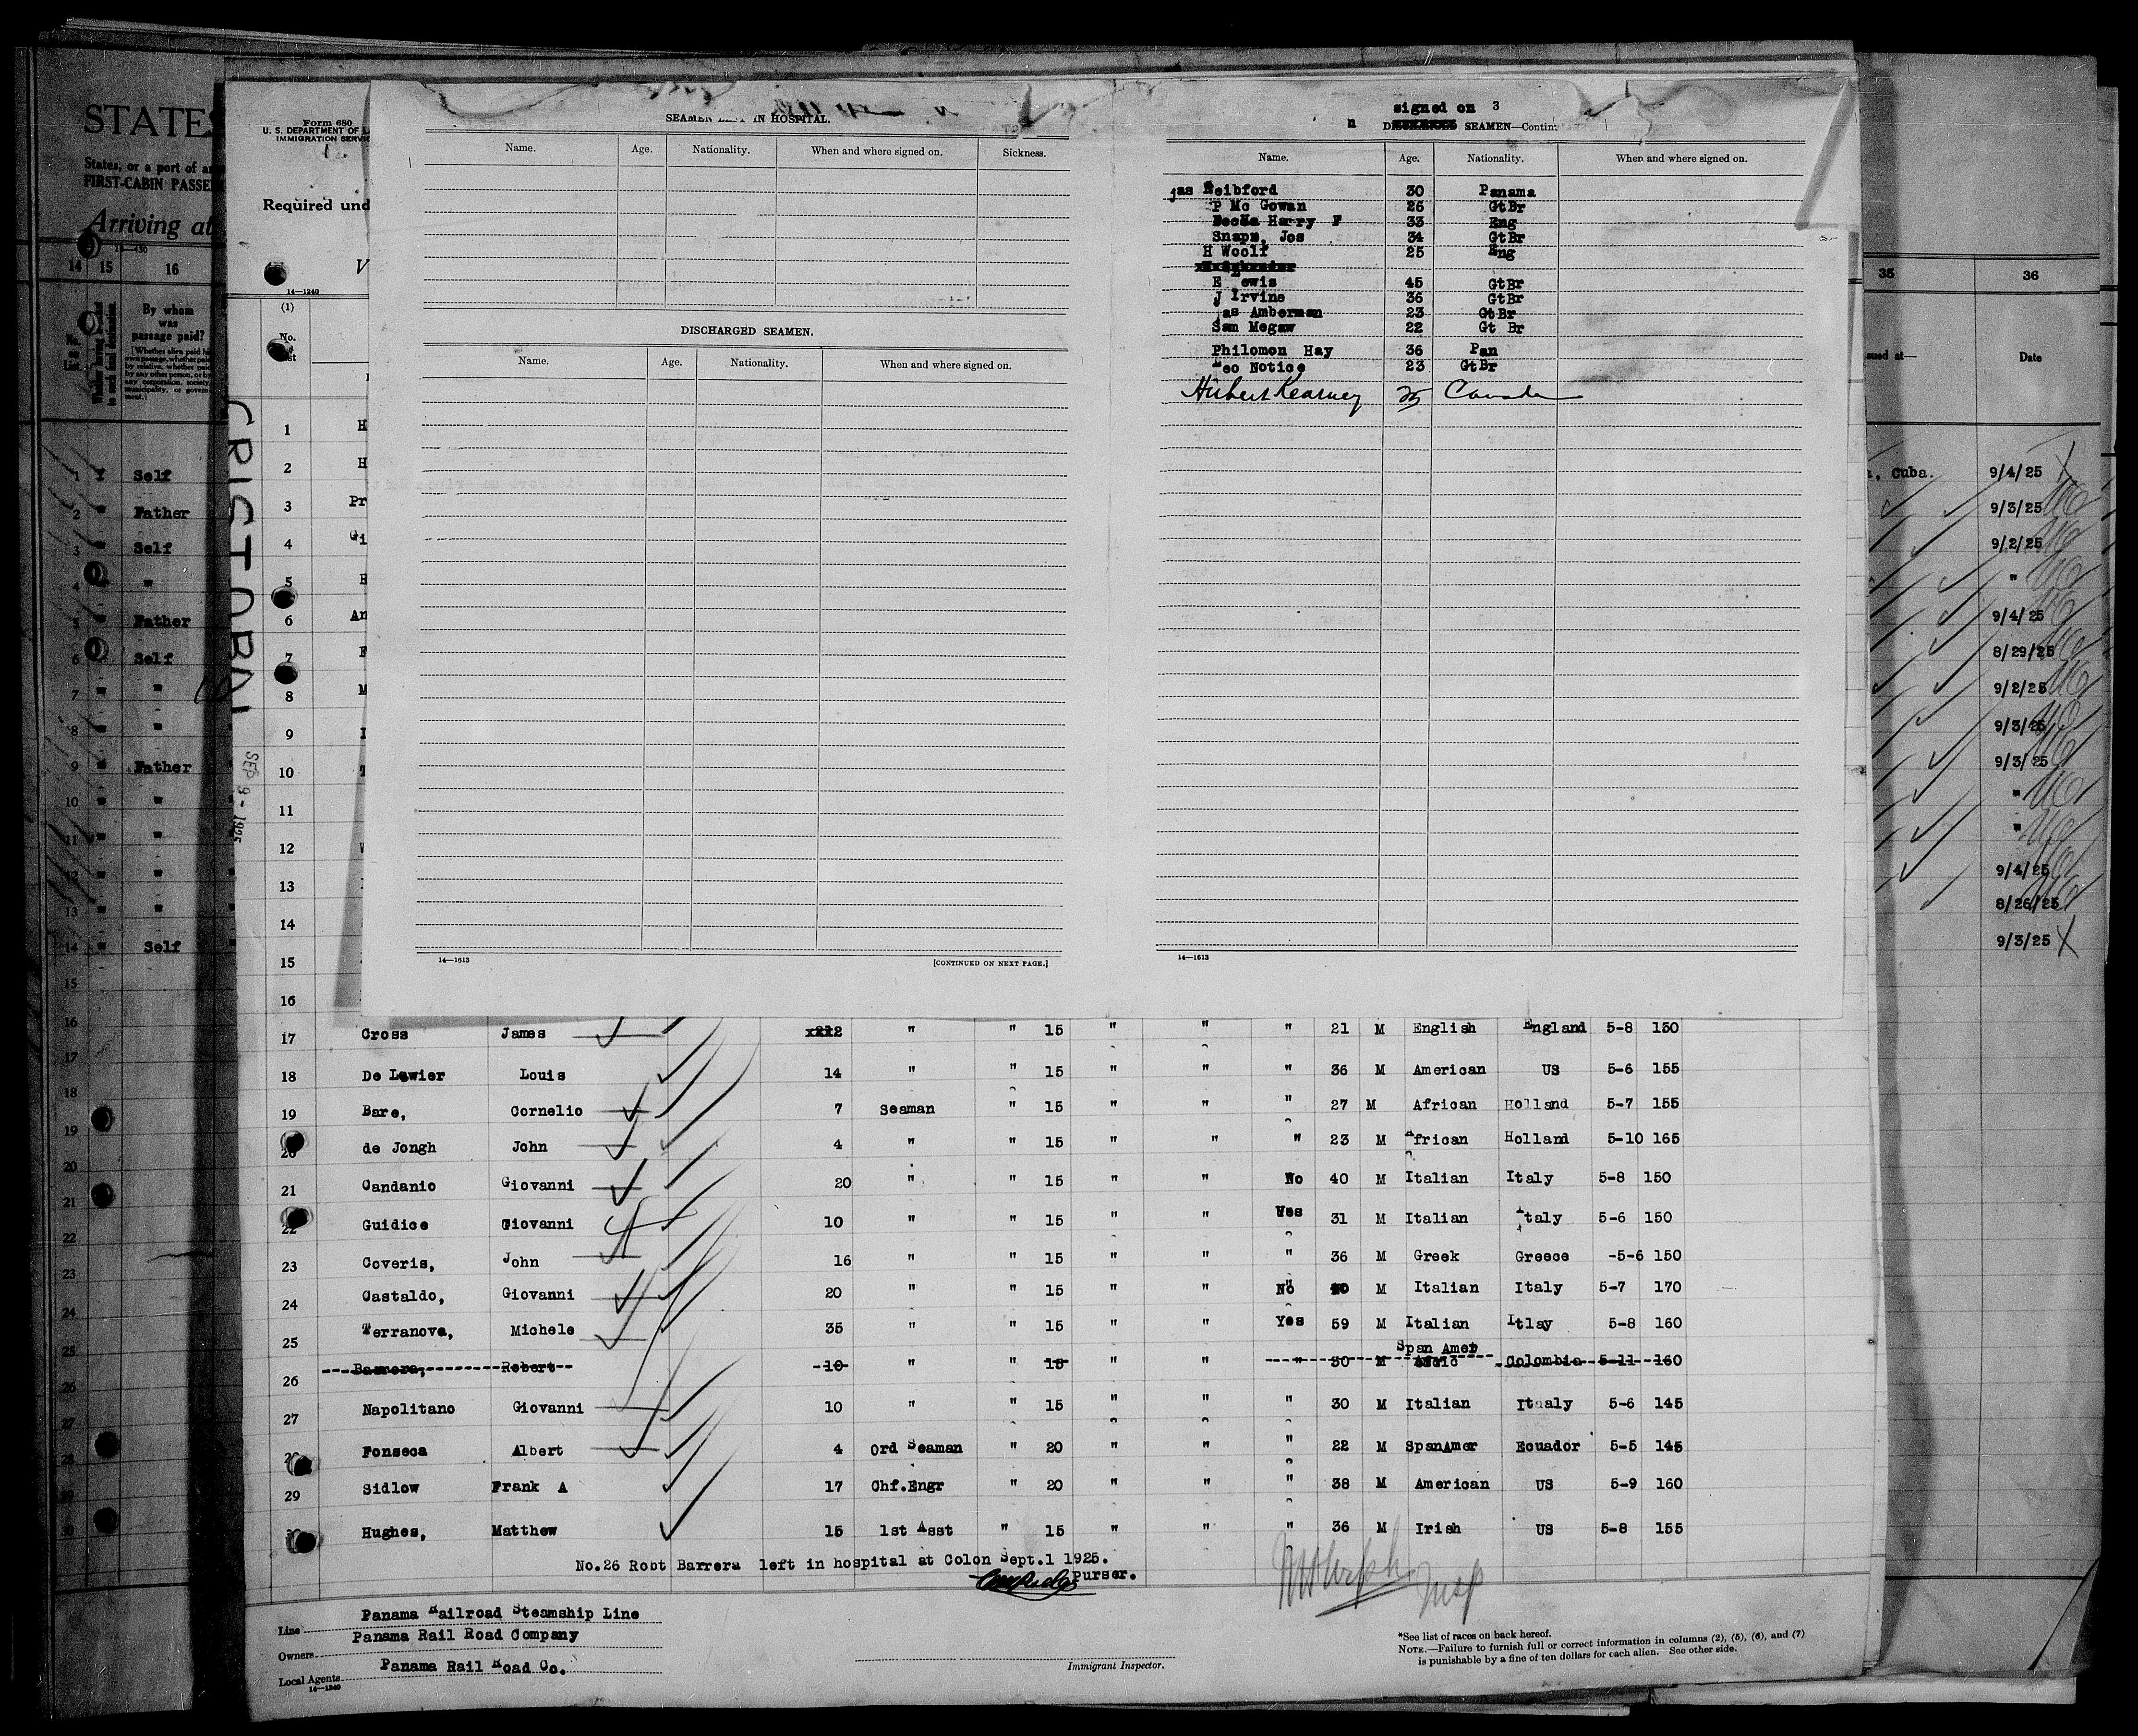 STATES
States, or a port of an
FIRST-CABIN PASSE
Arriving at
14 15 16
No. on List.
By whom was passage paid?
1 Self
2 " Father
3 " Self
4 "
5 Father
6 Self
7 " "
8 " "
9 " Father
10 " "
11 " "
12 " "
13 " "
14 " Self
15
16
17
18
19
20
21
22
23
24
25
26
27
28
29
30
Form 680
U. S. DEPARTMENT OF L
IMMIGRATION SERVIC
Required und
V
14—1240
(1)
No.
CRISTOBAL
SEP 9 - 1925
1 H
2 H
3 Pr
4 Gi
5
6 An
7
8 M
9
10
11
12
13
14
15
16
SEAMEN LEFT IN HOSPITAL.
Name. Age. Nationality. When and where signed on. Sickness.
DISCHARGED SEAMEN.
Name. Age. Nationality. When and where signed on.
14—1613 [CONTINUED ON NEXT PAGE.]
signed on 3
SEAMEN—Contin
Name. Age. Nationality. When and where signed on.
jas Neibford 30 Panama
P Mc Gowan 25 GtBr
Harry F 33 Eng
Snape, Jos 34 GtBr
H Woolf 25 Eng
E Lewis 45 GtBr
J Irvine 36 GtBr
jas Amberman 23 GtBr
Sam Megaw 22 Gt Br
Philomon Hay 36 Pan
Leo Notice 23 GtBr
Hubert Kearney 25 Canada
14—1613
17 Cross James 2 " " 15 " " " 21 M English England 5-8 150
18 De Lewier Louis 14 " " 15 " " " 36 M American US 5-6 155
19 Bare, Cornelio 7 Seaman " 15 " " " 27 M African Holland 5-7 155
20 de Jongh John 4 " " 15 " " " 23 M African Holland 5-10 165
21 Candanio Giovanni 20 " " 15 " " No 40 M Italian Italy 5-8 150
22 Guidice Giovanni 10 " " 15 " " Yes 31 M Italian Italy 5-6 150
23 Coveris, John 16 " " 15 " " " 36 M Greek Greece -5-6 150
24 Castaldo, Giovanni 20 " " 15 " " No 40 M Italian Italy 5-7 170
25 Terranova, Michele 35 " " 15 " " Yes 59 M Italian Itlay 5-8 160
26 Barrera, Robert 10 " " 15 " " " 30 M Span Amer Colombia 5-11 160
27 Napolitano Giovanni 10 " " 15 " " " 30 M Italian Itaaly 5-6 145
28 Fonseca Albert 4 Ord Seaman " 20 " " " 22 M SpanAmer Ecuador 5-5 145
29 Sidlow Frank A 17 Chf.Engr " 20 " " " 38 M American US 5-9 160
30 Hughes, Matthew 15 1st Asst " 15 " " " 36 M Irish US 5-8 155
No.26 Robt Barrera left in hospital at Colon Sept.1 1925.
Purser.
Line Panama Railroad Steamship Line
Owners Panama Rail Road Company
Local Agents Panama Rail Road Co.
14—1240
Immigrant Inspector.
*See list of races on back hereof.
NOTE.—Failure to furnish full or correct information in columns (2), (5), (6), and (7)
is punishable by a fine of ten dollars for each alien. See other side.
35 36
sued at— Date
, Cuba. 9/4/25
9/3/25
9/2/25
"
9/4/25
8/29/25
9/2/25
9/3/25
9/3/25
"
"
9/4/25
8/26/25
9/3/25